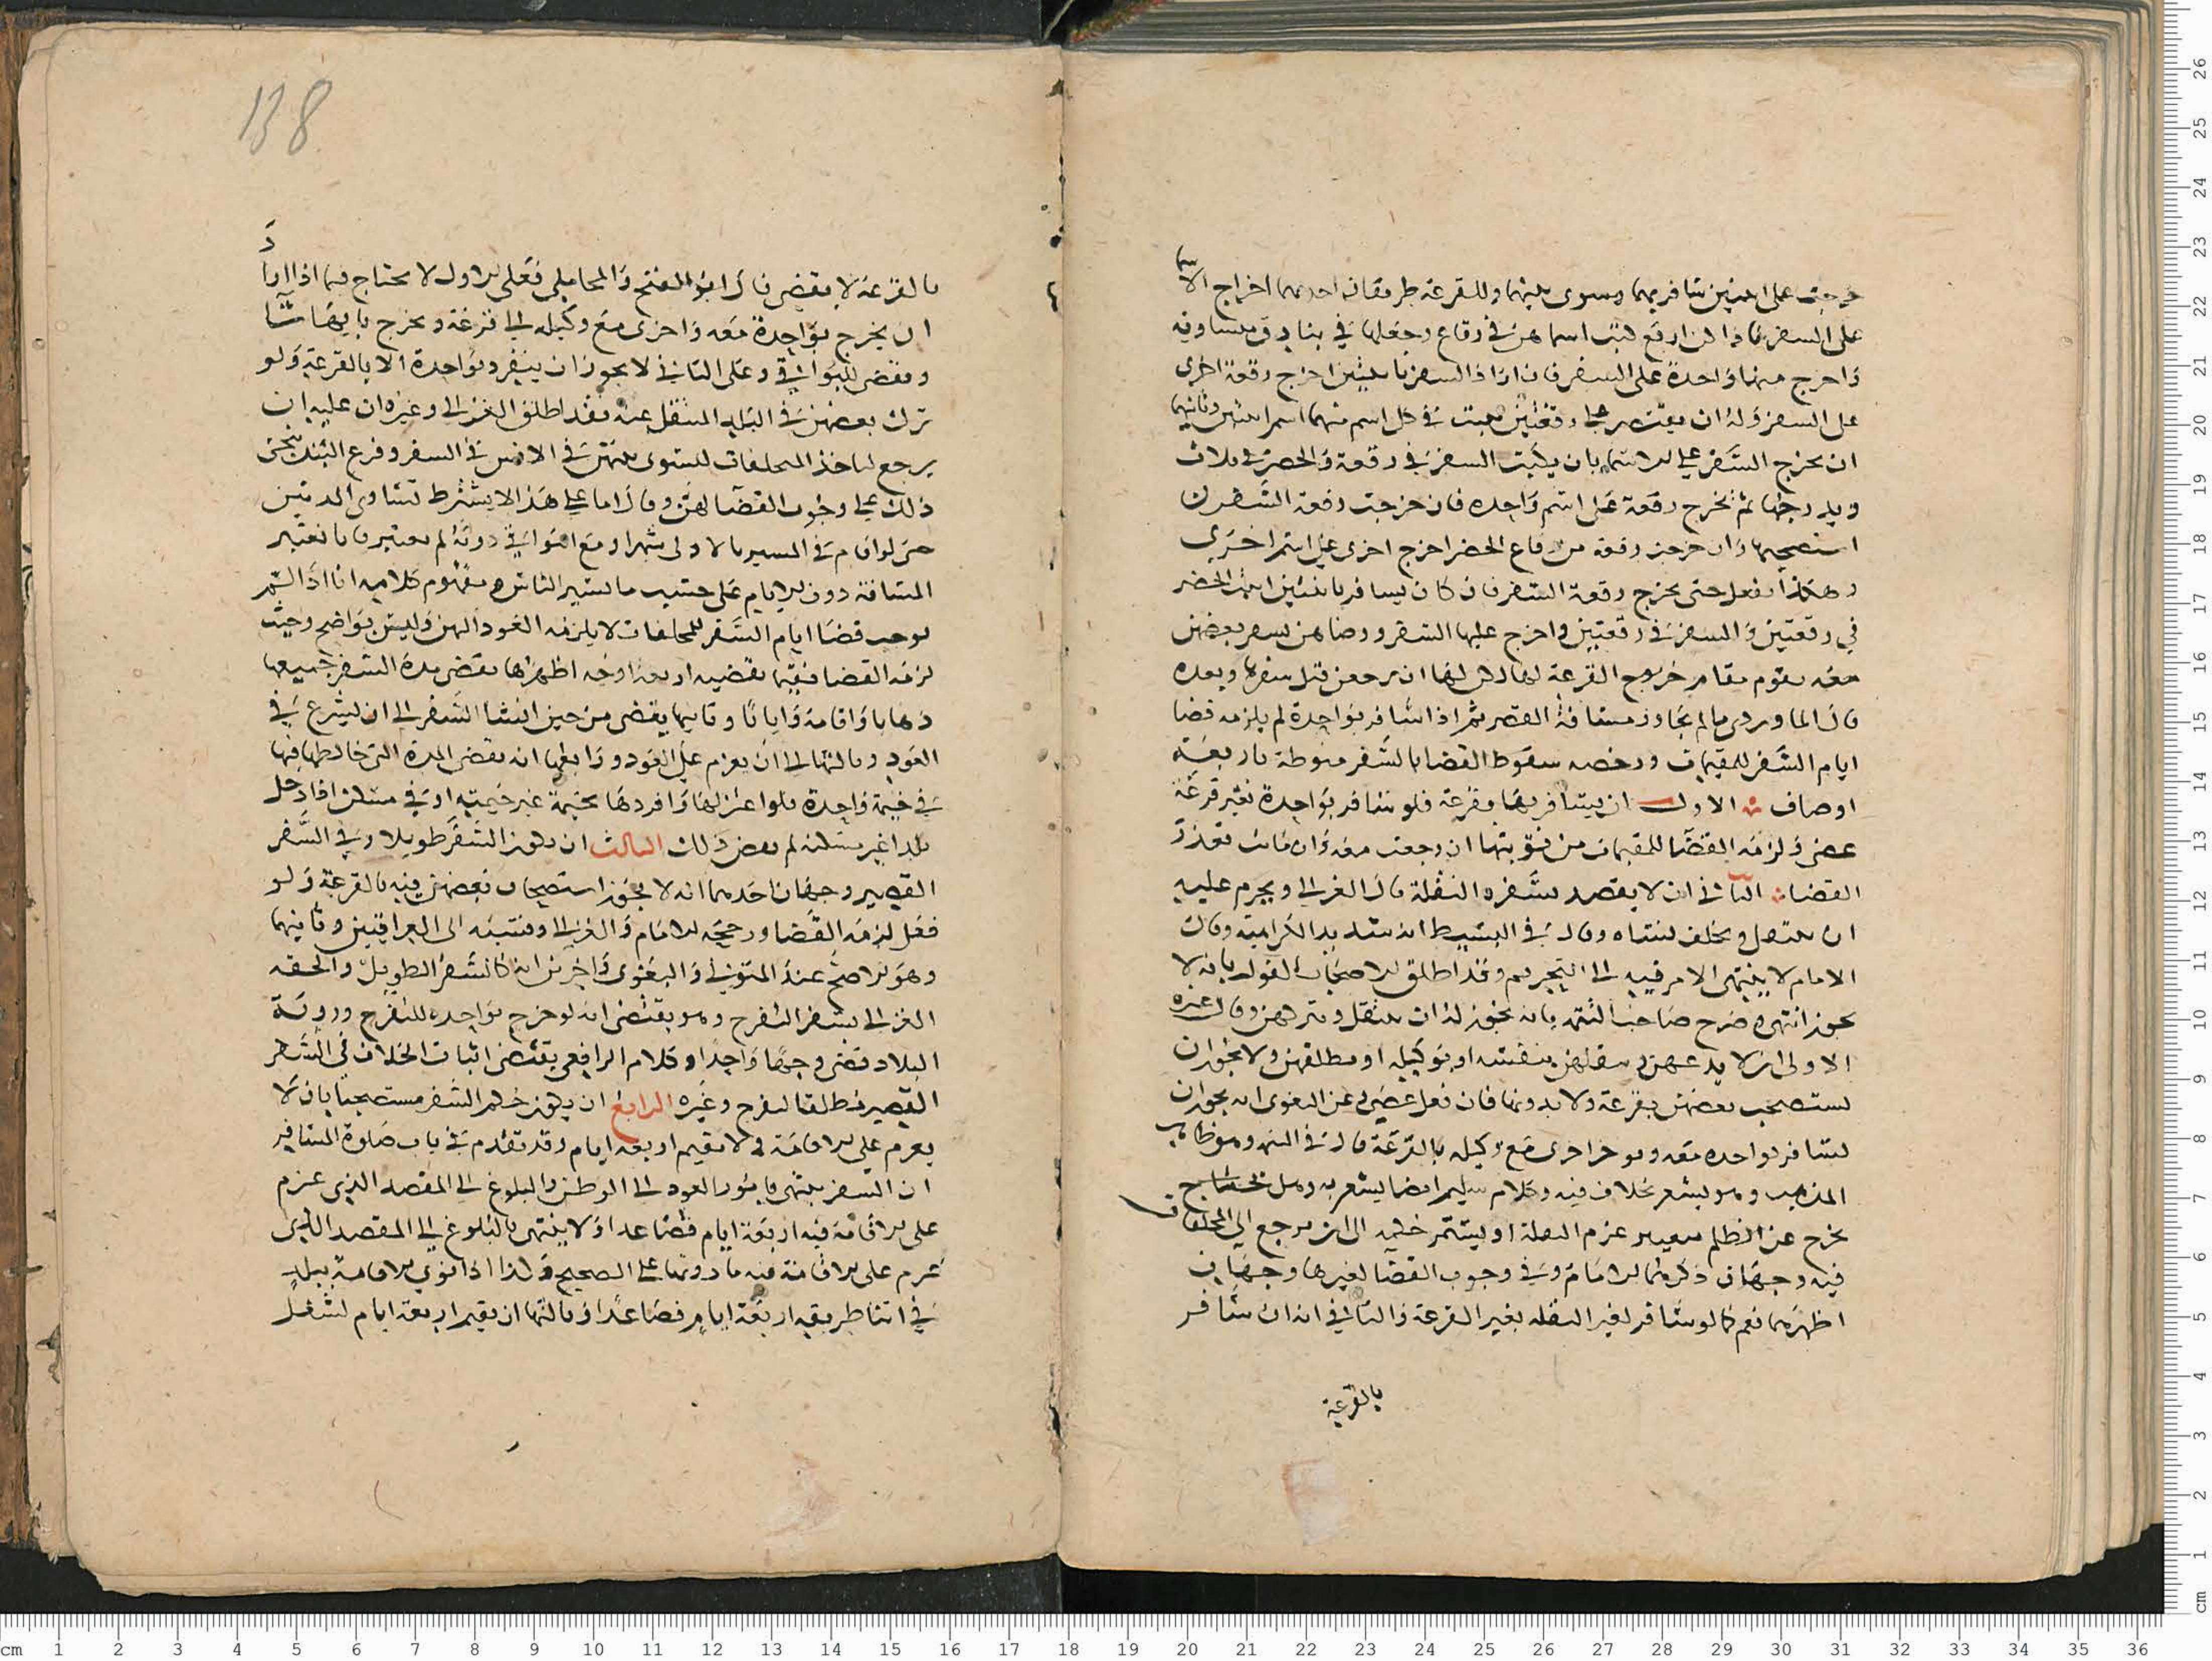 خرجت على اثنين سافر بهما وسوى بينهما وللقرعة طريقان احدهما اخراج الاسما
على السفر فاذا كن اربع كتب اسماهن في رقاع وجعلها في بنادق متساوية
واخرج منها واحدة على السفر فان اراد السفر باثنتين اخرج رقعة اخرى
على السفر وله ان يقتصر على رقعتين يثبت في كل اسم منهما اسم اثنتين وثانيهما
ان يخرج السفر على الاسما بان يكتب السفر في رقعة والحضر في ثلاث
ويدرجها ثم يخرج رقعة على اسم واحده فان خرجت رقعة السفر
استصحبها وان خرجت رقعة من رقاع الحضر اخرج اخرى على اسم اخرى
وهكذا يفعل حتى يخرج رقعة السفر فان كان يسافر باثنتين اثبت الحضر
في رقعتين والسفر في رقعتين واخرج عليها السفر ورضاهن بسفر بعضهن
معه يقوم مقام خروج القرعة لها لكن لها ان يرجعن قبل سفرها وبعده
قال الماوردي ما لم يجاوز مسافة القصر ثم اذا سافر بواحدة لم يلزمه قضا
ايام السفر للمقيمات ورخصه سقوط القضا بالسفر منوطة باربعة
اوصاف الاول ان يسافر بها بقرعة فلو سافر بواحدة بغير قرعة
عصى ولزمه القضا للمقيمات من نوبتها ان رجعت معه وان ماتت تعذر
القضا الثاني ان لا يقصد بسفره النقلة قال الغزالي ويحرم عليه
ان ينتقل ويخلف نساه وقال في البسيط انه شديد الكراهية وقال
الامام لا ينتهي الامر فيه الى التحريم وقد اطلق الاصحاب القول بانه لا
يجوز انتهى وصرح صاحب التتمه بانه يجوز له ان ينتقل ويتركهن وقال غيره
الاولى ان لا يدعهن بل ينقلهن بنفسه او بوكيله او يطلقهن ولا يجوز ان
يستصحب بعضهن بقرعة ولا بدونها فان فعل عصى وعن البغوي انه يجوز ان
يسافر بواحده معه و اخرى مع وكيله بالقرعة قال في التتمه وهو ظاهر
المذهب وهو يشعر بخلاف فيه وكلام سليم ايضا يشعر به وهل
يخرج عن الظلم بتغيير عزم النقلة او يستمر حكمه الى ان يرجع الى المخلفات
فيه وجهان ذكرهما الامام وفي وجوب القضا لغيرها وجهان
اظهرهما نعم كما لو سافر لغير النقله بغير القرعة والثاني انه ان سافر
بالقرعة
138
بالقرعة لا يقضي قال ابو الفتح والمحاملي فعلى الاول لا يحتاج فيما اذا اراد
ان يخرج بواحدة معه واخرى مع وكيله الى قرعة ويخرج بايهما شا
ويقضي للبواقي وعلى الثاني لا يجوز ان ينفرد بواحدة الا بالقرعة ولو
ترك بعضهن في البلد المنتقل عنه فقد اطلق الغزالي وغيره ان عليه ان
يرجع لياخذ المخلفات ليستوي بينهن في الانس في السفر وفرع البندنيجي
ذلك على وجوب القضا لهن وقال اما على هذا لا يشترط تساوي المدتين
حتى لو اقام في المسير بالاولى شهرا ومع البواقي دونه لم يعتبر فانا نعتبر
المسافة دون الايام على حسب ما يسير الناس ومفهوم كلامه انا اذا لم
نوجب قضا ايام السفر للمخلفات لا يلزمه العود الهن وليس بواضح وحيث
لزمه القضا فيما يقضيه اربعة اوجه اظهرها يقضي مدة السفر جميعها
ذهابا واقامة وايابا وثانيها يقضي من حين انشا السفر الى ان يشرع في
العود وثالثها الى ان يعزم على العود ورابعها انه يقضي المدة التي خالطها فيها
في خيمة واحدة فلو اعتزلها وافردها بخيمة غير خيمته او في مسكن اذا دخل
بلدا غير مسكنه لم يقض ذلك الثالث ان يكون السفر طويلا وفي السفر
القصير وجهان احدهما انه لا يجوز استصحاب بعضهن فيه بالقرعة ولو
فعل لزمه القضا ورجحه الامام والغزالي ونسبه الى العراقيين وثانيهما
وهو الاصح عند المتولي والبغوي واخرين انه كالسفر الطويل والحقه
الغزالي بسفر التفرج وهو يقتضي انه لو خرج بواحده للتفرج ورؤية
البلاد قضى وجها واحدا وكلام الرافعي يقتضي اثبات الخلاف في السفر
القصير مطلقا لتفرج وغيره الرابع ان يكون حكم السفر مستصحبا بان لا
يعزم على الاقامة ولا يقيم اربعة ايام وقد تقدم في باب صلوة المسافر
ان السفر ينتهي بامور العود الى الوطن والبلوغ الى المقصد الذي عزم
على الاقامة فيه اربعة ايام فصاعدا ولا ينتهي بالبلوغ الى المقصد الذي
عزم على الاقامة فيه ما دونها على الصحيح وكذا اذا نوى الاقامة ببلد
في اثنا طريقه اربعة ايام فصاعدا وثالثها ان يقيم اربعة ايام لشغل